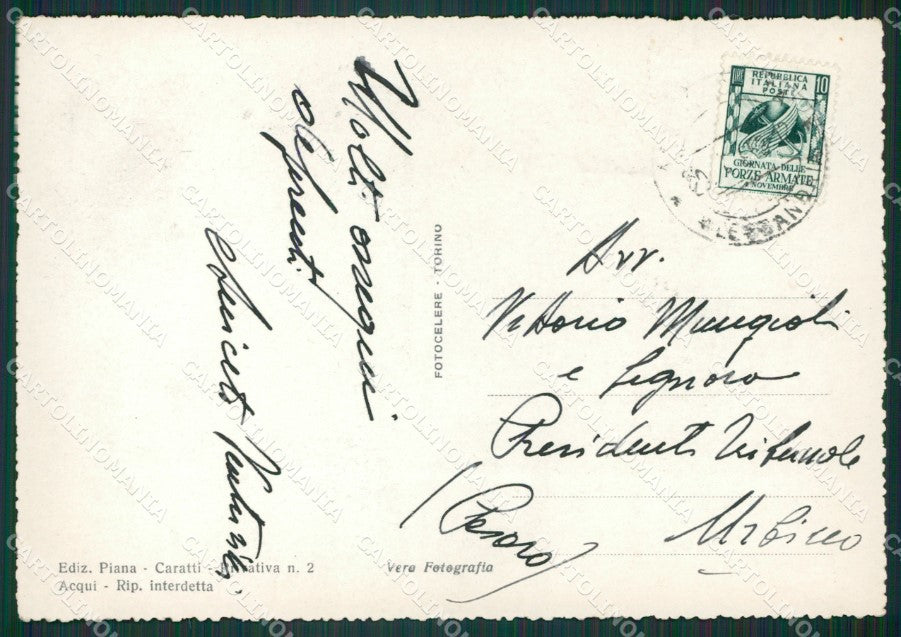 Molti ossequi
Avv.
Vittorio
e Signora
Presidente Tribunale
Urbino
(Pesaro)
REPUBBLICA
ITALIANA
POSTE
LIRE 10
GIORNATA DELLE
FORZE ARMATE
4 NOVEMBRE
FOTOCELERE - TORINO
Ediz. Piana - Caratti - Privativa n. 2
Acqui - Rip. interdetta
Vera Fotografia
CARTOLINOMANIA